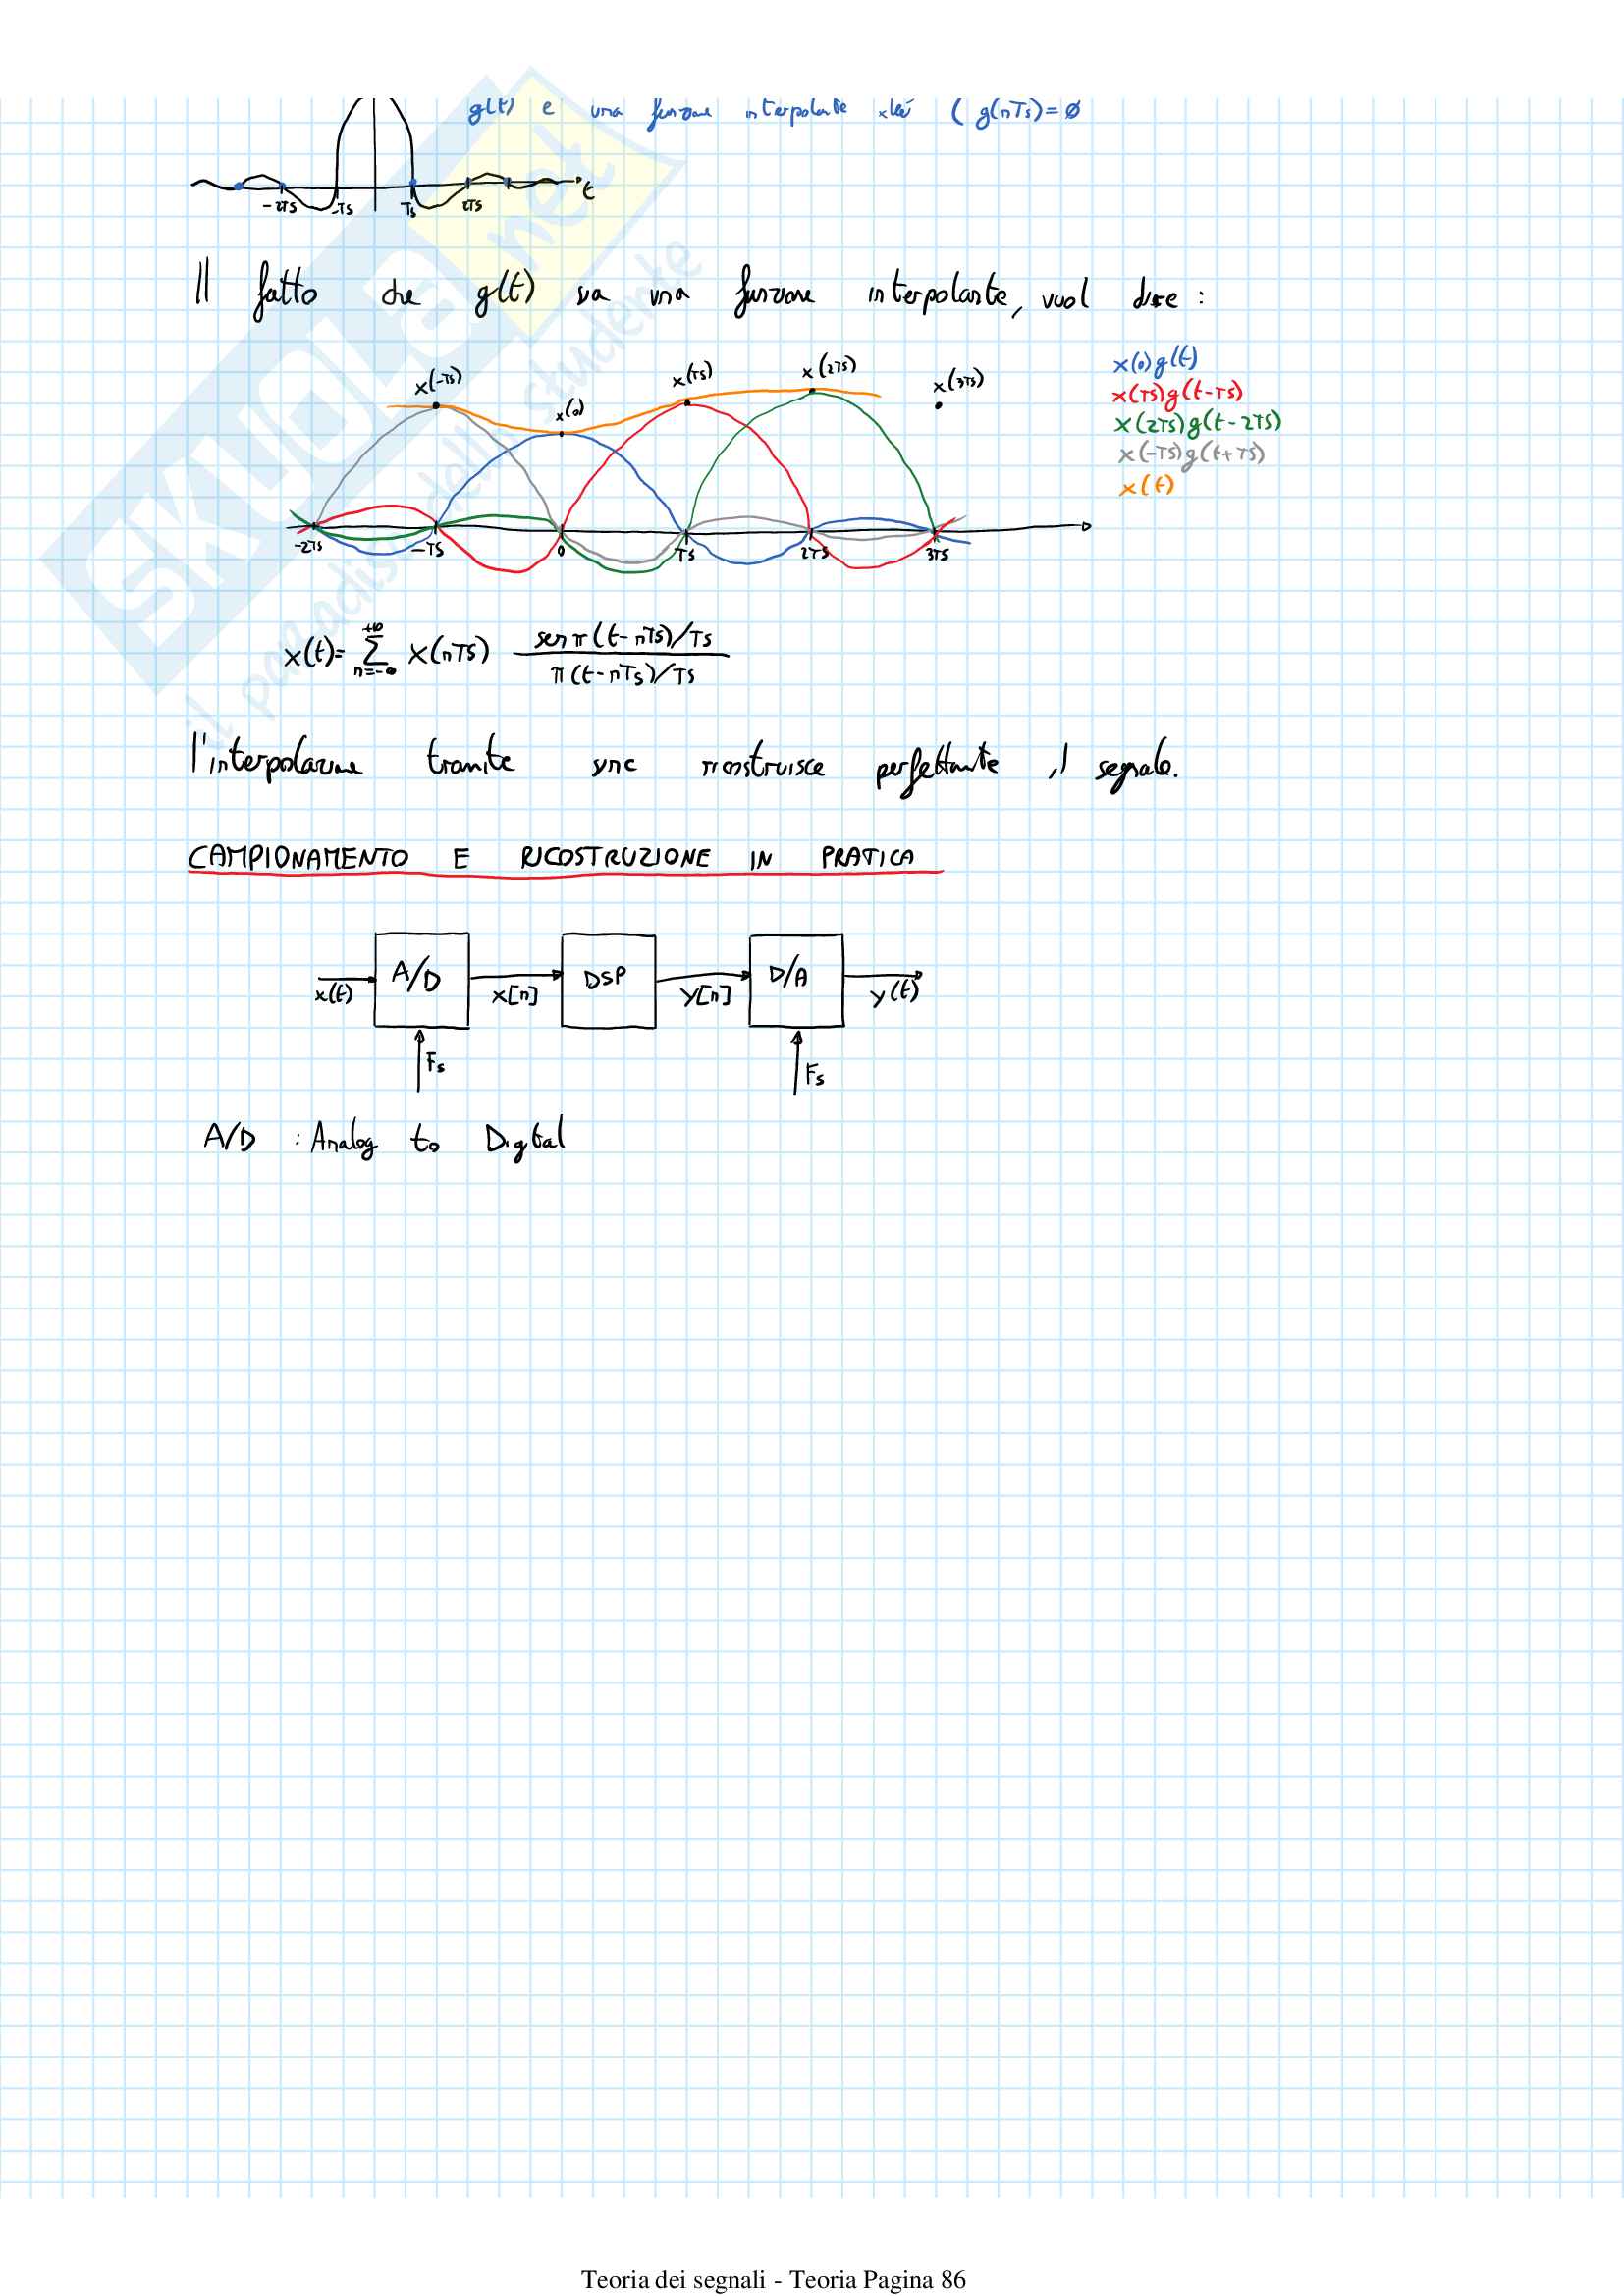 g(t) e una funzione interpolante xké ( g(nTs)=ø
-2TS -TS TS 2TS t
Il fatto che g(t) sia una funzione interpolante, vuol dire :
x(-TS) x(0) x(TS) x(2TS) x(3TS)
x(0)g(t)
x(TS)g(t-TS)
x(2TS)g(t-2TS)
x(-TS)g(t+TS)
x(t)
-2TS -TS 0 TS 2TS 3TS
x(t)= +∞ Σ n=-∞ x(nTS) sen π(t-nTS)/TS
π(t-nTs)/TS
l'interpolazione tramite sinc ricostruisce perfettamente il segnale.
CAMPIONAMENTO E RICOSTRUZIONE IN PRATICA
x(t) A/D x[n] DSP y[n] D/A y(t)
Fs Fs
A/D : Analog to Digital
SKUOLA.net
il paradiso dello studente
Teoria dei segnali - Teoria Pagina 86